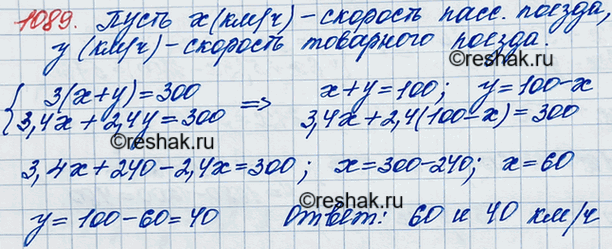 1089. Пусть x(км/ч) – скорость пасс. поезда,
y (км/ч) – скорость товарного поезда.
{ 3(x+y)=300 ⇒ x+y=100; y=100-x
3,4x+2,4y=300 3,4x+2,4(100-x)=300
©reshak.ru
©reshak.ru
3,4x+240-2,4x=300; x=300-240; x=60
©reshak.ru
y=100-60=40 Ответ: 60 и 40 км/ч